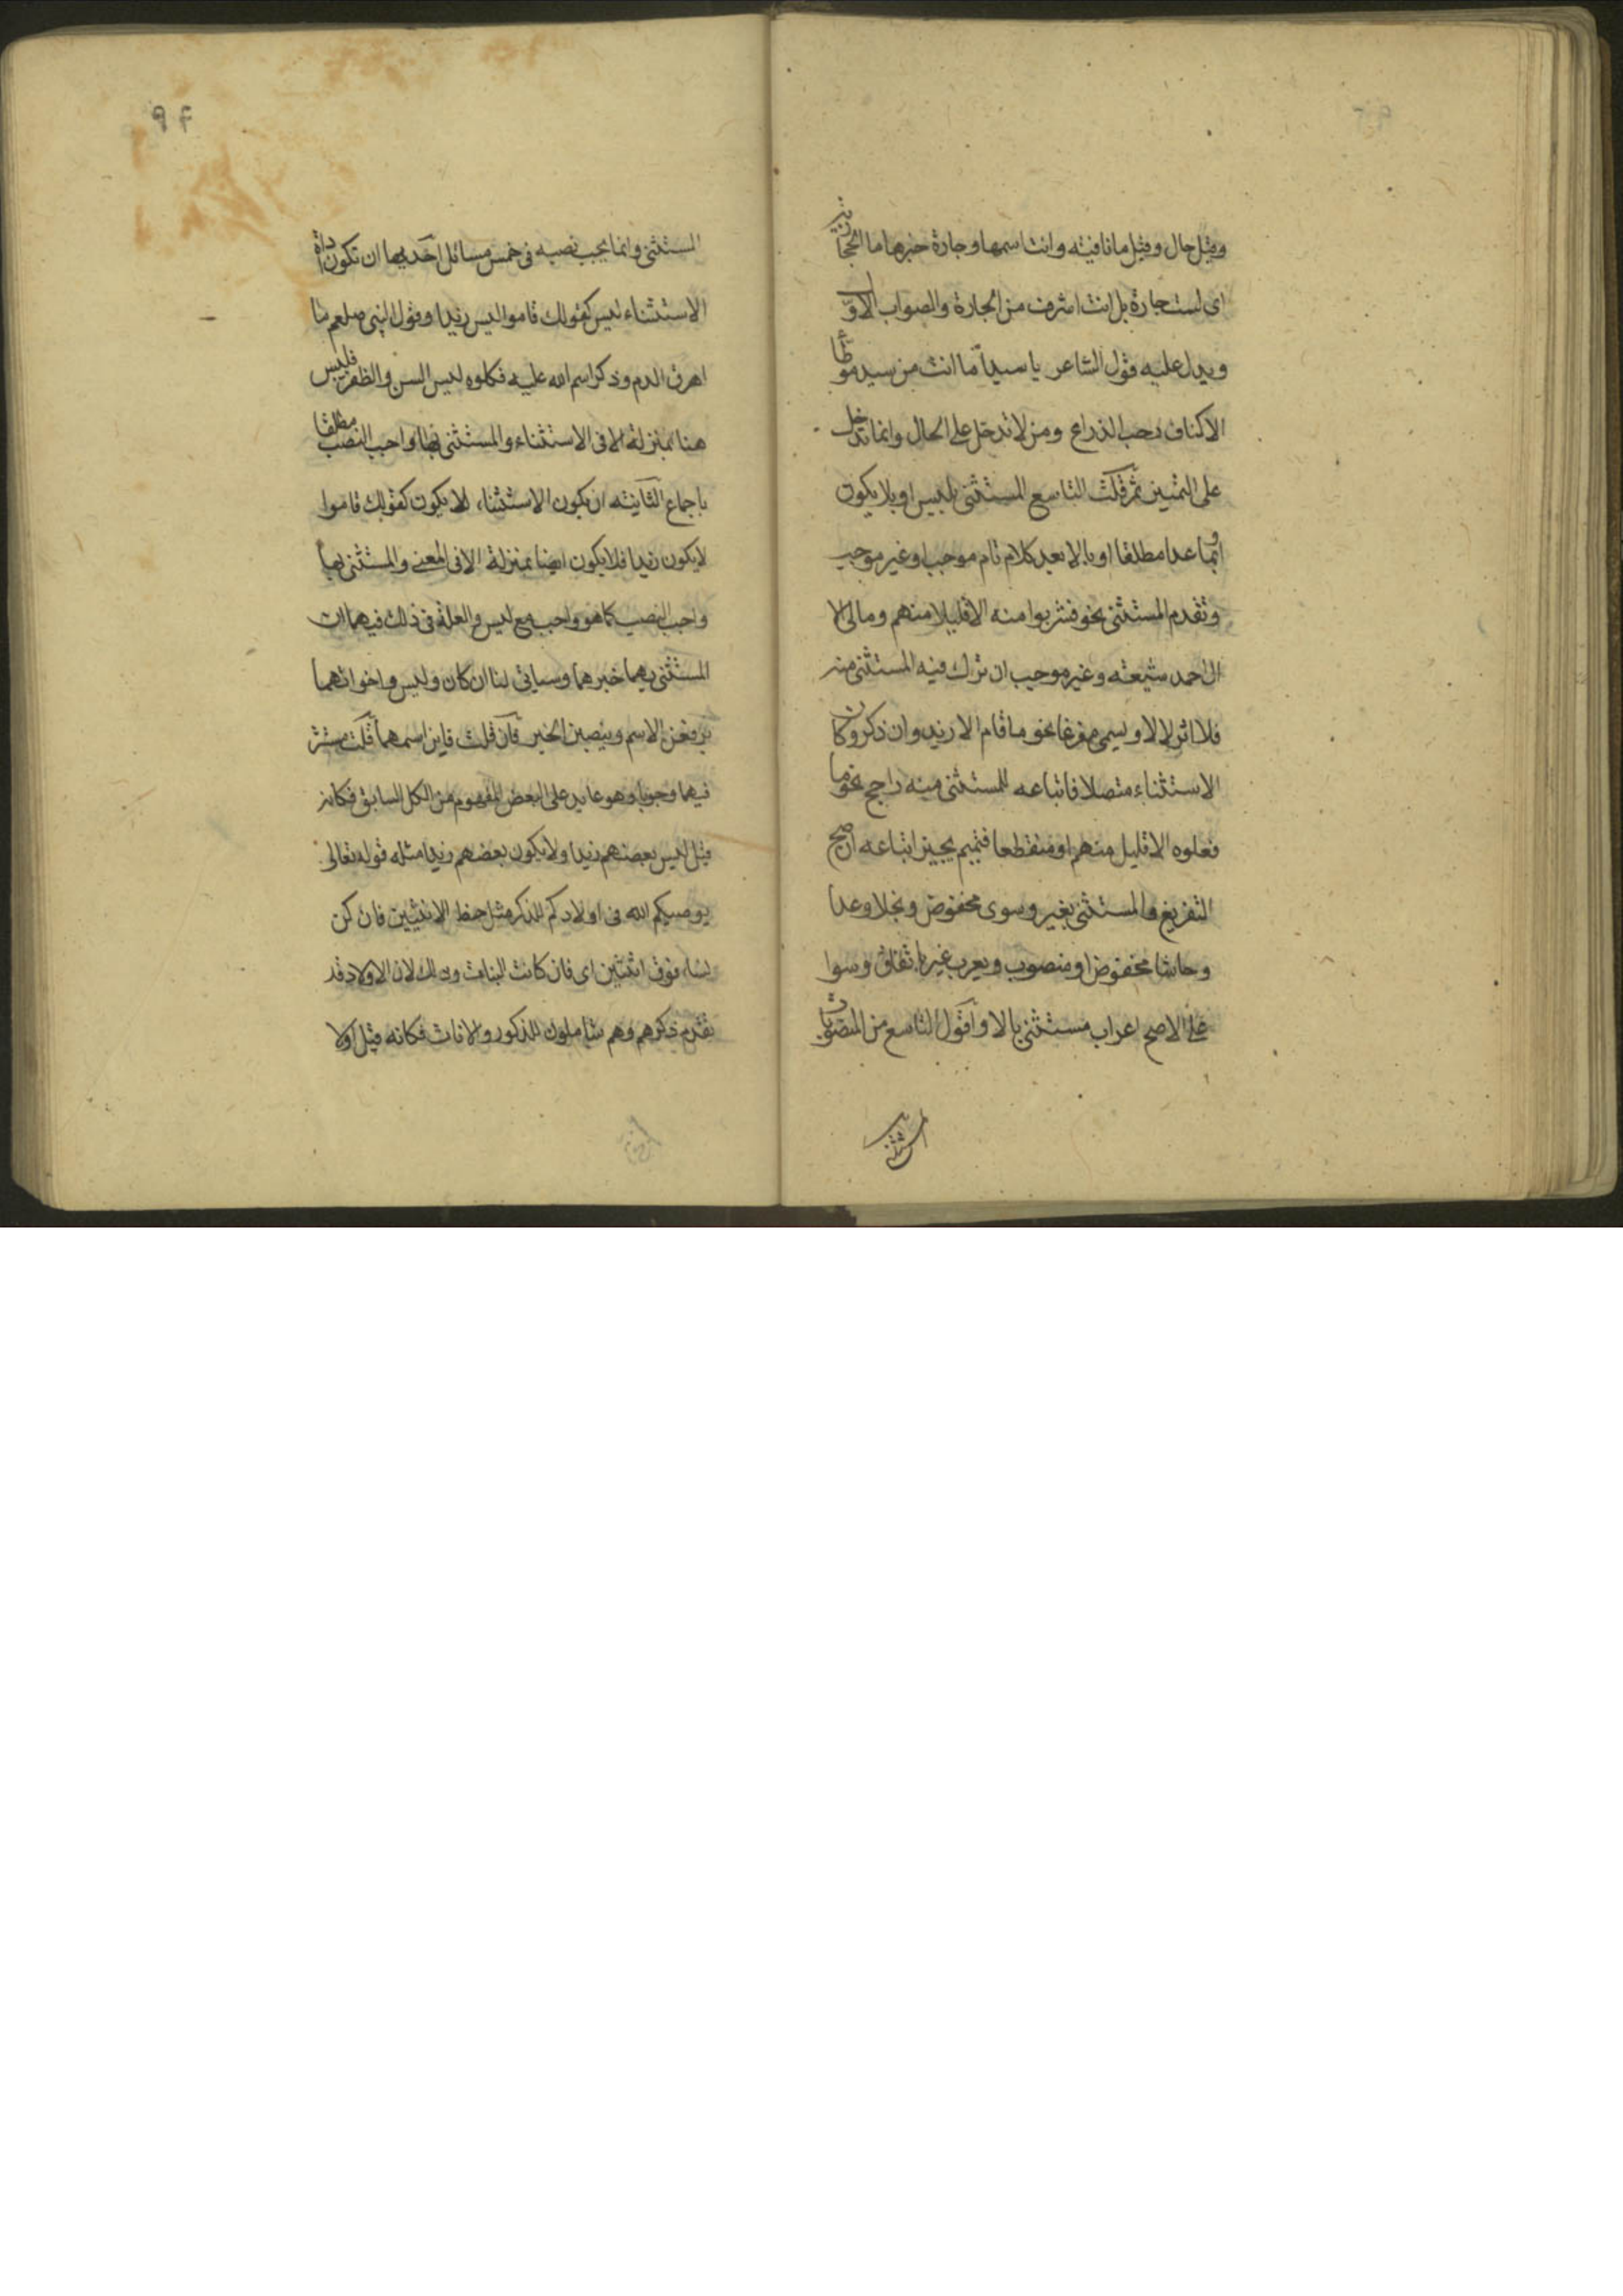 وقيل حال وقيل ما نافيته وانت اسمها وجارة خبرها ما الحجازية
اى لست جارة بل انت اشرف من الجارة والصواب الاوّل
ويدل عليه قول الشاعر يا سيداً ما انت من سيد موطّأ
الاكناف رحب الذراع ومن لا تدخل على الحال وانما تدخل
على التميز ثم قلت التاسع المستثنى بليس او بلا يكون
او بما عدا مطلقا او بالا بعد كلام تام موجب او غير موجب
وتقدم المستثنى نحو فشربوا منه الا قليلا منهم ومالى الا
ال احمد شيعته وغير موجب ان ترك فيه المستثنى منه
فلا اثر لالا ويسمى مفرغا نحو ما قام الا زيد وان ذكر وكان
الاستثناء متصلا فاتباعه للمستثنى منه راجح نحو ما
فعلوه الا قليل منهم او منقطعا فتميم يجيز اتباعه ان صح
التفريغ والمستثنى بغير وسوى مخفوض وبخلا وعدا
وحاشا مخفوض او منصوب ويعرب غير باتفاق وسوا
على الاصح اعراب مستثنى بالا واقول التاسع من المنصوبات
المستثنى
٩٤
المستثنى وانما يجب نصبه فى خمس مسائل احديها ان تكون اداة
الاستثناء ليس كقولك قاموا ليس زيدا وقول النبى صلعم ما
اهرق الدم وذكر اسم الله عليه فكلوه ليس السن والظفر فليس
هنا بمنزلة الا فى الاستثناء والمستثنى بها واجب النصب مطلقا
باجماع الثانيته ان يكون الاستثناء بلا يكون كقولك قاموا
لا يكون زيدا فلا يكون ايضا بمنزلة الا فى المعنى والمستثنى بها
واجب النصب كما هو واجب مع ليس والعلة فى ذلك فيهما ان
المستثنى بهما خبرهما وسياتى لنا ان كان وليس واخواتهما
يرفعن الاسم وينصبن الخبر فان قلت فاين اسمهما قلت مستتر
فيهما وجوبا وهو عايد على البعض المفهوم من الكل السابق فكانه
قيل ليس بعضهم زيدا ولا يكون بعضهم زيدا مثله قوله تعالى
يوصيكم الله فى اولادكم للذكر مثل حظ الانثيين فان كن
نساء فوق اثنتين اى فان كانت البنات وذلك لان الاولاد قد
تقدم ذكرهم وهم شاملون للذكور والاناث فكانه قيل اولا